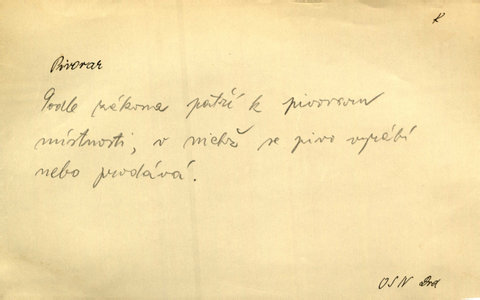 K
Pivovar
Podle zákona patří k pivovaru
místnosti, v nichž se pivo vyrábí
nebo prodává.
OSN